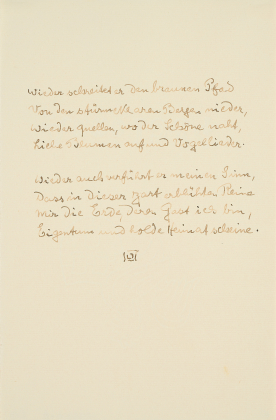 Wieder schreitet er den braunen Pfad
Von den stürmeklaren Bergen nieder,
Wieder quellen, wo der Schöne naht,
Liebe Blumen auf und Vogellieder.
Wieder auch verführt er meinen Sinn,
Dass in dieser zart erblühten Reine
Mir die Erde, deren Gast ich bin,
Eigentum und holde Heimat scheine.